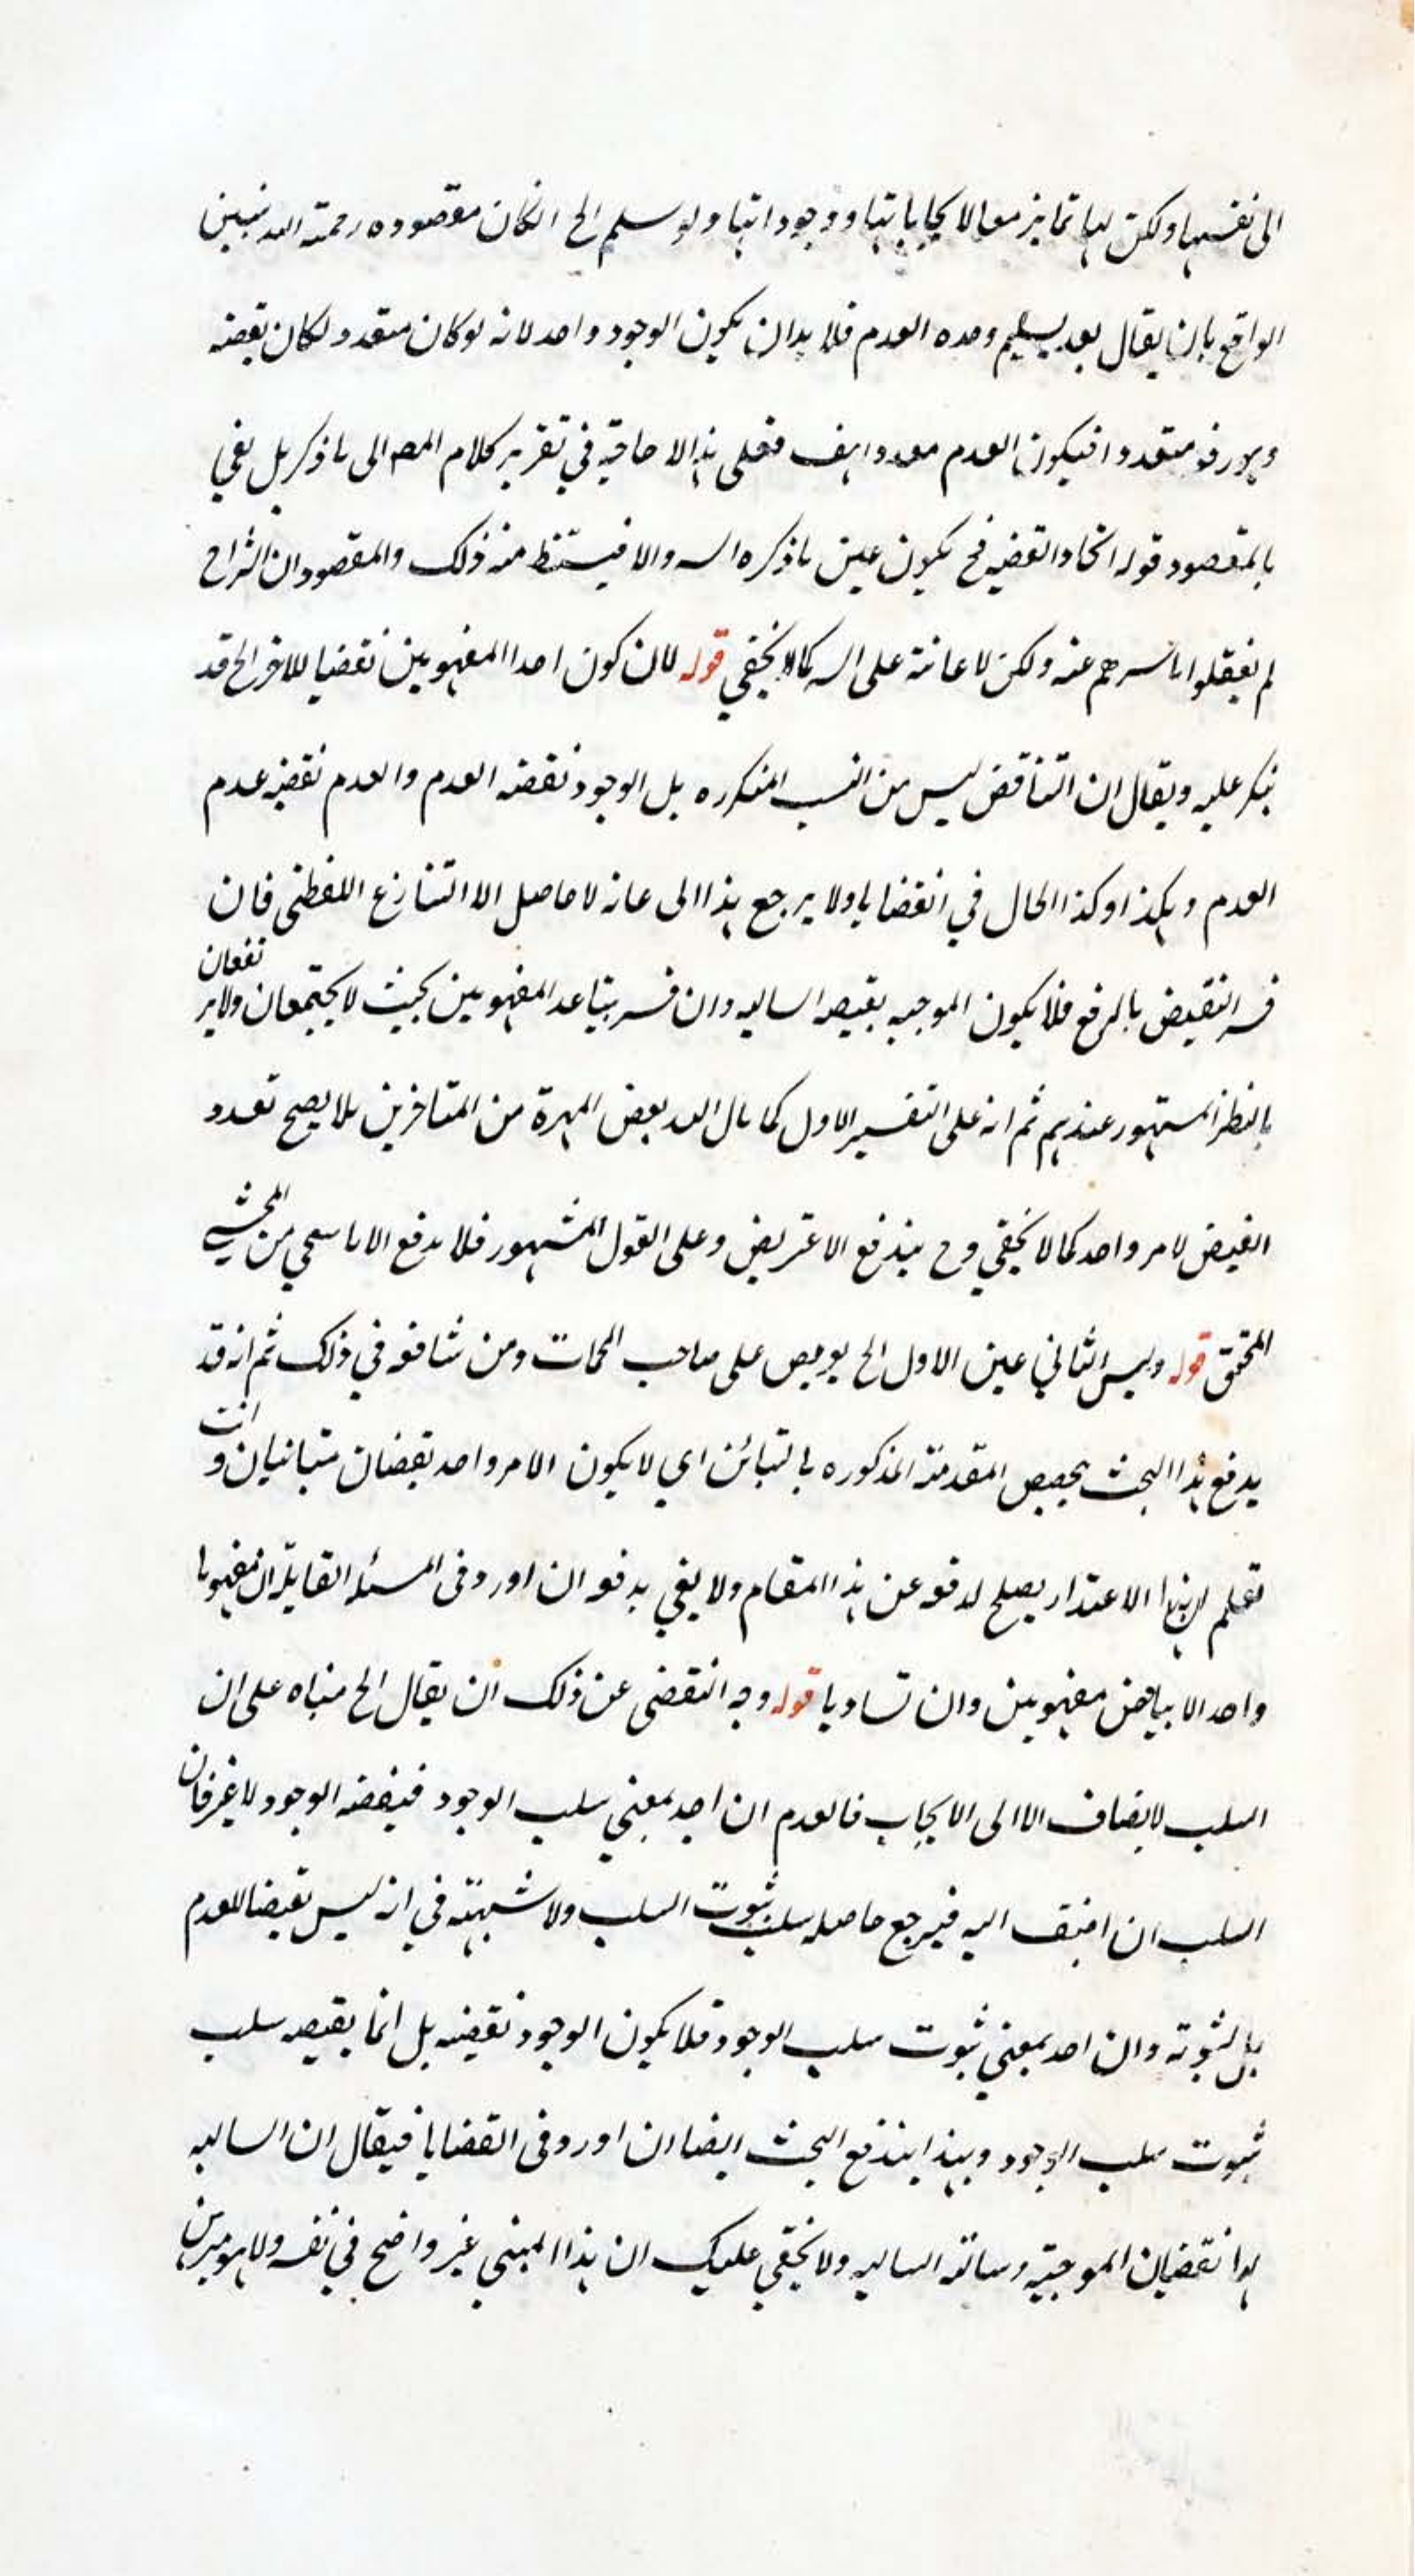 الى نفسها ولكن لها تمايز مع الايجابات او وجوداتها ولو سلم الخ ان كان مقصوده رحمة الله تبيين
الواقع بان يقال بعد تسليم وحده العدم فلا بد ان يكون الوجود واحد لانه لو كان متعدد لكان نقيضه
وهو رفعه متعددا فيكون العدم معدد ايضا فعلى هذا لا حاجة في تقرير كلام المص الى ما ذكر بل يفي
بالمقصود قوله اتحاد القضيه فح يكون عين ما ذكره الش والا فيستنظ منه ذلك والمقصود ان الشراح
لم يغفلوا باسرهم عنه ولكن لا عانة على الش كما لا يخفى قوله لان كون احدا المفهومين نقضيا للاخر الخ قد
ينكر عليه ويقال ان التناقض ليس من النسب المتكرره بل الوجود نقضه العدم والعدم نقضيه عدم
العدم وهكذا وكذا الحال في انقضايا ولا يرجع هذا الى عانه لا حاصل الا التنازع اللفظي فان
فسر النقيض بالرفع فلا يكون الموجبه نقيضه السالبه وان فسر بتباعد المفهومين بحيث لا يجتمعان ولا يرتفعان
بالنظر المشهور عندهم ثم انه على التفسير الاول كما مال اليه بعض المهرة من المتاخرين بلا يصح تعدد
النقيض لامر واحد كما لا يخفى وح يندفع الاعتريض وعلى القول المشهور فلا يدفع الا ما سيجي من المحشي
المحقق قوله وليس الثاني عين الاول الخ يو على صاحب المحاكمات ومن شافعه في ذلك ثم انه قد
يدفع هذا البحث بتخصيص المقدمة المذكوره بالتبائن اي لا يكون الامر واحد نقضان متباينان وانت
تعلم ان هذا الاعتذار يصلح لدفعه عن هذا المقام ولا يفي بدفعه ان اورد في المسئله القايلة ان مفهوما
واحد الا يناقض مفهومين وان تساويا قوله وجه التقضى عن ذلك ان يقال الخ مبناه على ان
السلب لا يضاف الا الى الايجاب فالعدم ان اخذ بمعنى سلب الوجود فنيقضه الوجود لا غير فان
السلب ان اضيف اليه فيرجع حاصله سلب ثبوت السلب ولا شبهة في انه ليس نقيضا للعدم
بل لثبوته وان اخذ بمعني ثبوت سلب الوجود فلا يكون الوجود نقضيه بل انما نقيضه سلب
ثبوت سلب الوجود وبهذا يندفع البحث ايضا ان اورد في القضايا فيقال ان السالبه
لها نقضيان الموجبة وسالبة السالبه ولا يخفى عليك ان هذا المبني غير واضح في نفسه ولا هو مبرهن